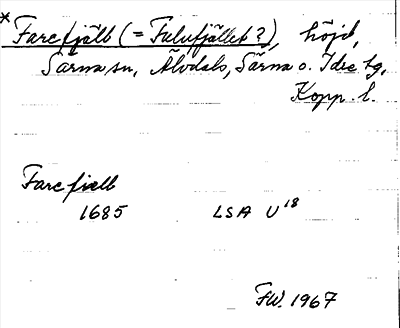 * Farefjäll (= Fulufjället?), höjd,
Särna sn, Älvdals, Särna o. Idre tg,
Kopp. l.
Farefiell
1685 LSA U18
FW. 1967